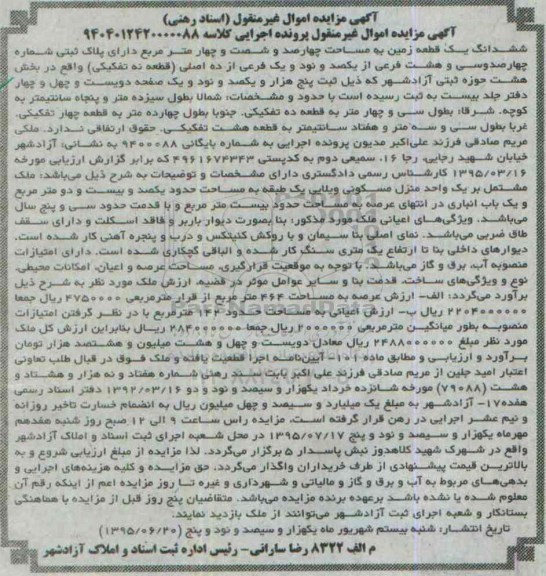 آگهی مزایده اموال غیرمنقول (اسناد رهنی)
آگهی مزایده اموال غیرمنقول پرونده اجرایی کلاسه ۹۴۰۴۰۱۲۴۲۰۰۰۰۰۸۸
ششدانگ یک قطعه زمین به مساحت چهارصد و شصت و چهار متر مربع دارای پلاک ثبتی شماره
چهارصدوسی و هشت فرعی از یکصد و نود و یک فرعی از ده اصلی (قطعه نه تفکیکی) واقع در بخش
هشت حوزه ثبتی آزادشهر که ذیل ثبت پنج هزار و یکصد و نود و یک صفحه دویست و چهل و چهار
دفتر جلد بیست به ثبت رسیده است با حدود و مشخصات: شمالا بطول سیزده متر و پنجاه سانتیمتر به
کوچه. شرقا: بطول سی و چهار متر به قطعه ده تفکیکی. جنوبا بطول چهارده متر به قطعه چهار تفکیکی.
غربا بطول سی و سه متر و هفتاد سانتیمتر به قطعه هشت تفکیکی. حقوق ارتفاقی ندارد. ملکی
مریم صادقی فرزند علی‌اکبر مدیون پرونده اجرایی به شماره بایگانی ۹۴۰۰۰۸۸ به نشانی: آزادشهر
خیابان شهید رجایی، رجا ۱۶، سمیعی دوم به کدپستی ۴۹۶۱۶۷۴۳۴۳ که برابر گزارش ارزیابی مورخه
۱۳۹۵/۰۳/۱۶ کارشناس رسمی دادگستری دارای مشخصات و توضیحات به شرح ذیل می‌باشد: ملک
مشتمل بر یک واحد منزل مسکونی ویلایی یک طبقه به مساحت حدود یکصد و بیست و دو متر مربع
و یک باب انباری در انتهای عرصه به مساحت حدود بیست متر مربع و با قدمت حدود سی و پنج سال
می‌باشد. ویژگی‌های اعیانی ملک مورد مذکور: بنا بصورت دیوار باربر و فاقد اسکلت و دارای سقف
طاق ضربی می‌باشد. نمای اصلی بنا سیمان و با روکش کنیتکس و درب و پنجره آهنی کار شده است.
دیوارهای داخلی بنا تا ارتفاع یک متری سنگ کار شده و الباقی گچکاری شده است. دارای امتیازات
منصوبه آب، برق و گاز می‌باشد. با توجه به موقعیت قرارگیری، مساحت عرصه و اعیان، امکانات محیطی،
نوع و ویژگی‌های ساخت، قدمت بنا و سایر عوامل موثر در قضیه، ارزش ملک مورد نظر به شرح ذیل
برآورد می‌گردد: الف- ارزش عرصه به مساحت ۴۶۴ متر مربع از قرار مترمربعی ۴۷۵۰۰۰۰ ریال جمعا
۲۲۰۴۰۰۰۰۰۰ ریال ب- ارزش اعیانی به مساحت حدود ۱۴۲ مترمربع با در نظر گرفتن امتیازات
منصوبه بطور میانگین مترمربعی ۲۰۰۰۰۰۰ ریال جمعا ۲۸۴۰۰۰۰۰۰ ریال بنابراین ارزش کل ملک
مورد نظر مبلغ ۲۴۸۸۰۰۰۰۰۰ ریال معادل دویست و چهل و هشت میلیون و هشتصد هزار تومان
برآورد و ارزیابی و مطابق ماده ۱۰۱ آیین‌نامه اجرا قطعیت یافته و ملک فوق در قبال طلب تعاونی
اعتبار امید جلین از مریم صادقی فرزند علی اکبر بابت سند رهنی شماره هفتاد و نه هزار و هشتاد و
هشت (۷۹۰۸۸) مورخه شانزده خرداد یکهزار و سیصد و نود و دو ۱۳۹۲/۰۳/۱۶ دفتر اسناد رسمی
هفده-۱۷ آزادشهر به مبلغ یک میلیارد و سیصد و چهل میلیون ریال به انضمام خسارت تاخیر روزانه
و نیم عشر اجرایی در رهن قرار گرفته است، مزایده راس ساعت ۹ الی ۱۲ صبح روز شنبه هفدهم
مهرماه یکهزار و سیصد و نود و پنج ۱۳۹۵/۰۷/۱۷ در محل شعبه اجرای ثبت اسناد و املاک آزادشهر
واقع در شهرک شهید کلاهدوز نبش پاسدار ۵ برگزار می‌گردد. لذا مزایده از مبلغ ارزیابی شروع و به
بالاترین قیمت پیشنهادی از طرف خریداران واگذار می‌گردد. حق مزایده و کلیه هزینه‌های اجرایی و
بدهی‌های مربوط به آب و برق و گاز و مالیاتی و شهرداری و غیره تا روز مزایده اعم از اینکه رقم آن
معلوم شده یا نشده باشد برعهده برنده مزایده می‌باشد. متقاضیان پنج روز قبل از مزایده با هماهنگی
بستانکار و شعبه اجرای ثبت آزادشهر می‌توانند از ملک بازدید نمایند.
تاریخ انتشار: شنبه بیستم شهریور ماه یکهزار و سیصد و نود و پنج (۱۳۹۵/۰۶/۲۰)
م الف ۸۳۲۲ رضا سارانی- رئیس اداره ثبت اسناد و املاک آزادشهر